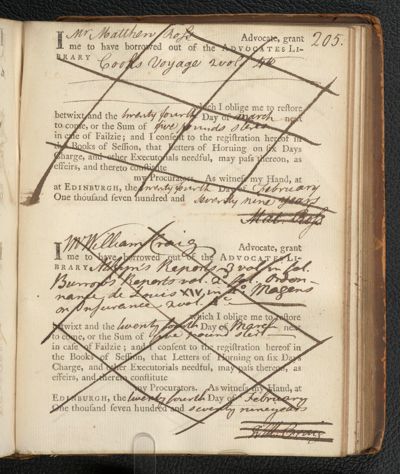 205.
I Mr Matthew Ross Advocate, grant
me to have borrowed out of the ADVOCATES LI-
BRARY Cooks Voyage 2 vols 4to
which I oblige me to reſtore
betwixt and the twenty fourth Day of March next
to come, or the Sum of five pounds sterl
in caſe of Failzie; and I conſent to the regiſtration hereof in
the Books of Seſſion, that Letters of Horning on ſix Days
Charge, and other Executorials needful, may paſs thereon, as
effeirs, and thereto conſtitute
my Procurators. As witneſs my Hand, at
at EDINBURGH, the twenty fourth Day of February
One thouſand ſeven hundred and seventy nine years
Mat. Ross
I Mr William Craig Advocate, grant
me to have borrowed out of the ADVOCATES LI-
BRARY Reports 3 vol in fol.
Burrow's Reports vol. 2d fol. Ordon
nance de Louis XIV, in 4o Magens
on Insurance 2 vol. 4o
which I oblige me to reſtore
betwixt and the twenty fourth Day of March next
to come, or the Sum of five pounds sterl
in caſe of Failzie; and I conſent to the regiſtration hereof in
the Books of Seſſion, that Letters of Horning on ſix Days
Charge, and other Executorials needful, may paſs thereon, as
effeirs, and thereto conſtitute
my Procurators. As witneſs my Hand, at
EDINBURGH, the twenty fourth Day of February
One thouſand ſeven hundred and seventy nine years